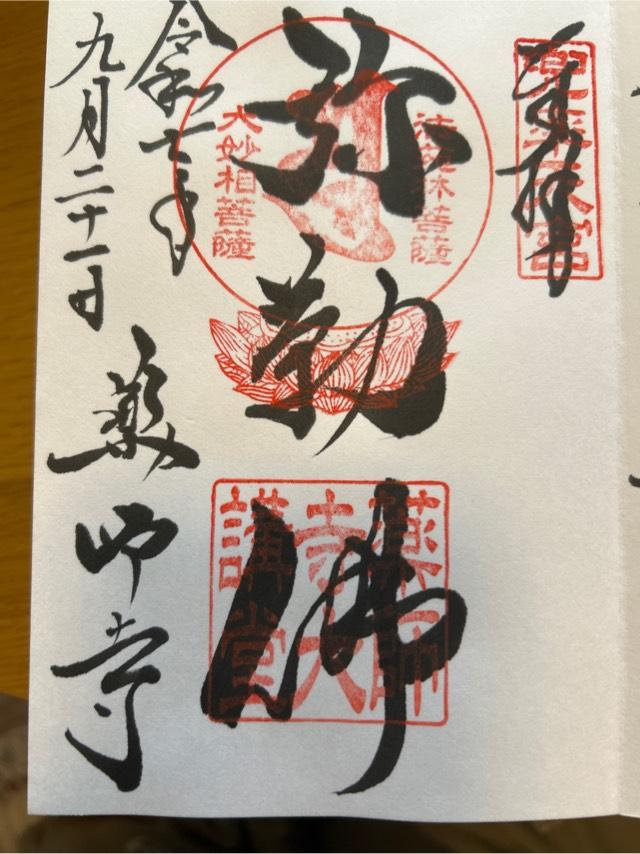 奉拝
兜率天宮
弥勒佛
法苑林菩薩
大妙相菩薩
薬師
寺大
講堂
令和七年
九月二十一日
薬師寺